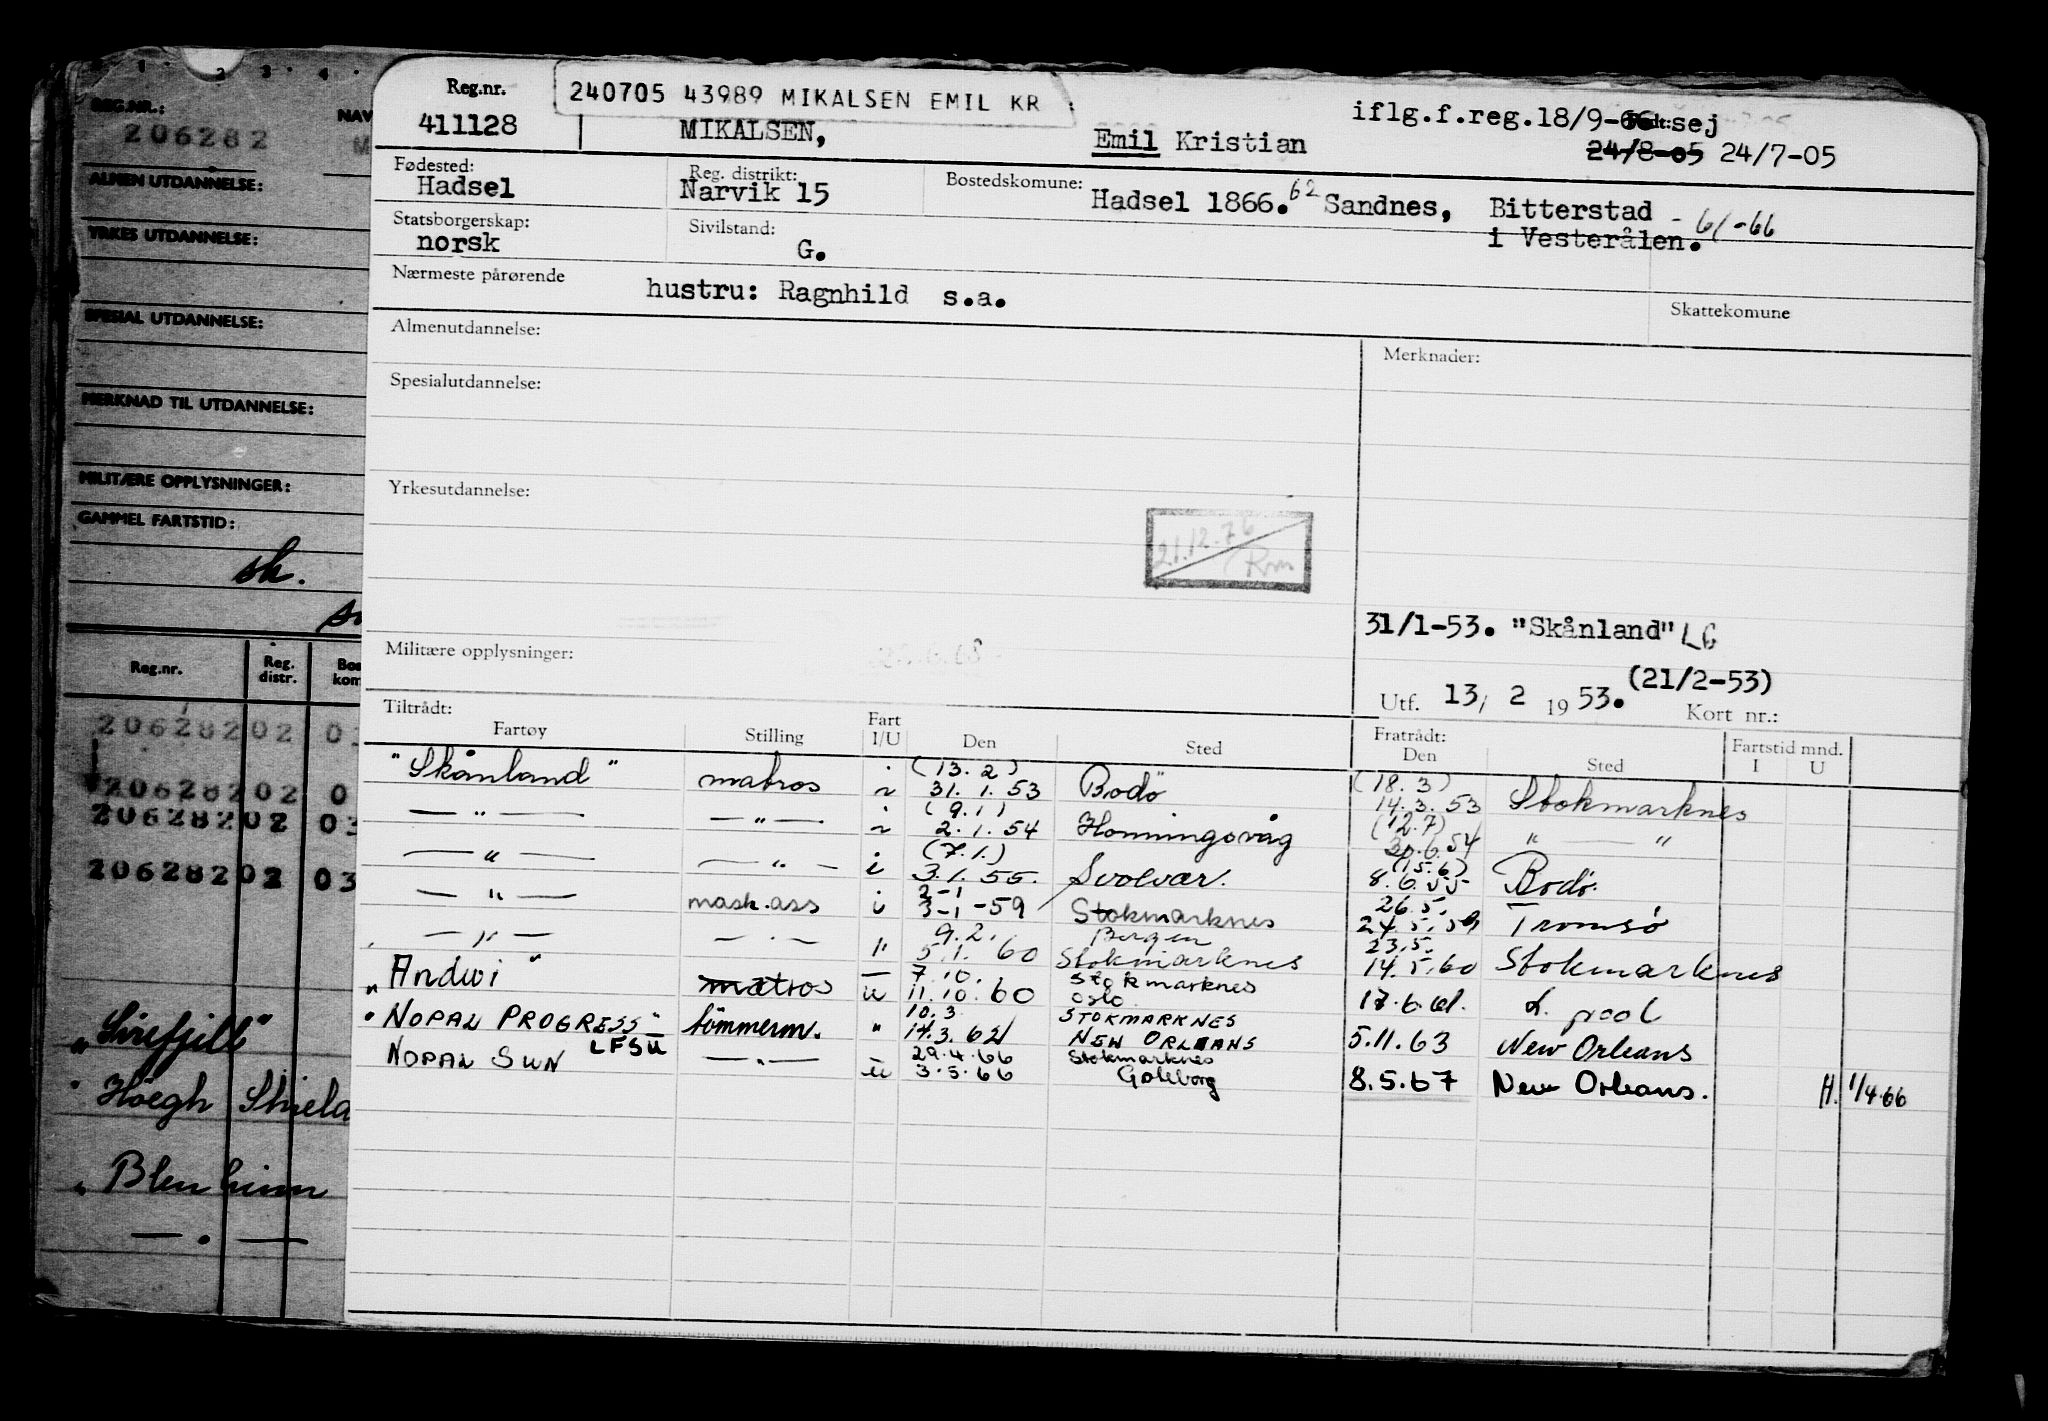 1 2 3 4
REG.NR.:
NAV
206282
M
ALMEN UTDANNELSE:
YRKES UTDANNELSE:
SPESIAL UTDANNELSE:
MERKNAD TIL UTDANNELSE:
MILITÆRE OPPLYSNINGER:
GAMMEL FARTSTID:
sk.
Reg.nr. Reg. distr. Bos kom
20628202 03
20628202 0
20628202 03
20628202 03
"Sirefjell"
" Höegh Shiela
" Blenheim
— " —
Reg.nr. 240705 43989 MIKALSEN EMIL KR
iflg.f.reg.18/9-66 sej
411128 MIKALSEN, Emil Kristian 24/8-05 24/7-05
Fødested: Reg. distrikt: Bostedskomune:
Hadsel Narvik 15 Hadsel 1866. 62 Sandnes, Bitterstad - 61-66
i Vesterålen.
Statsborgerskap: Sivilstand:
norsk G.
Nærmeste pårørende hustru: Ragnhild s.a.
Skattekomune
Almenutdannelse: Merknader:
Spesialutdannelse:
Yrkesutdannelse:
21.12.76
Rm
31/1-53. "Skånland" LG
Militære opplysninger:
(21/2-53)
Utf. 13/ 2 1953. Kort nr.:
Tiltrådt: Fratrådt:
Fartøy Stilling Fart I/U Den Sted Den Sted Fartstid mnd. I U
"Skånland" matros i (13.2) 31.1.53 Bodø (18.3) 14.3.53 Stokmarknes
— " — — " — i (9.1) 2.1.54 Honningsvåg (12.7) 30.6.54 " — "
— " — — " — i (7.1.) 3.1.55. Svolvær. (15.6) 8.6.55 Bodø.
— " — mask.ass i 2-1 3-1-59 Stokmarknes 26.5. 24.5.59 Tromsø
— " — — " — " 9.2. 5.1.60 Bergen Stokmarknes 23.5. 14.5.60 Stokmarknes
"Andwi" matros u 7.10. 11.10.60 Stokmarknes Oslo. 17.6.61. L.pool
" NOPAL PROGRESS" tömmerm. " 10.3 14.3.62 STOKMARKNES NEW ORLEANS 5.11.63 New Orleans
NOPAL SUN LFSU — " — u 29.4.66 3.5.66 Stokmarknes Goteborg 8.5.67 New Orleans. H. 1/4.66